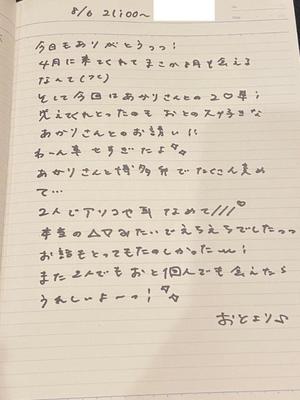 8/6 21:00〜
今日もありがとうっっ！
4月に来てくれてまさか8月も会える
なんて(>_<)
そして今回はあかりさんとの2♡車！
覚えてくれとったのも おとの大好きな
あかりさんとのお誘い!!
わーん幸せすぎたよ
あかりさんと博多弁でたくさん責め
て…
2人でアソコや耳 なめて///♡
本当の△▽みたいでえちえちでしたっっ
お話もとってもたのしかったーー!
また2人でもおと1個人でも会えたら
うれしいよーっ!
おとより♪